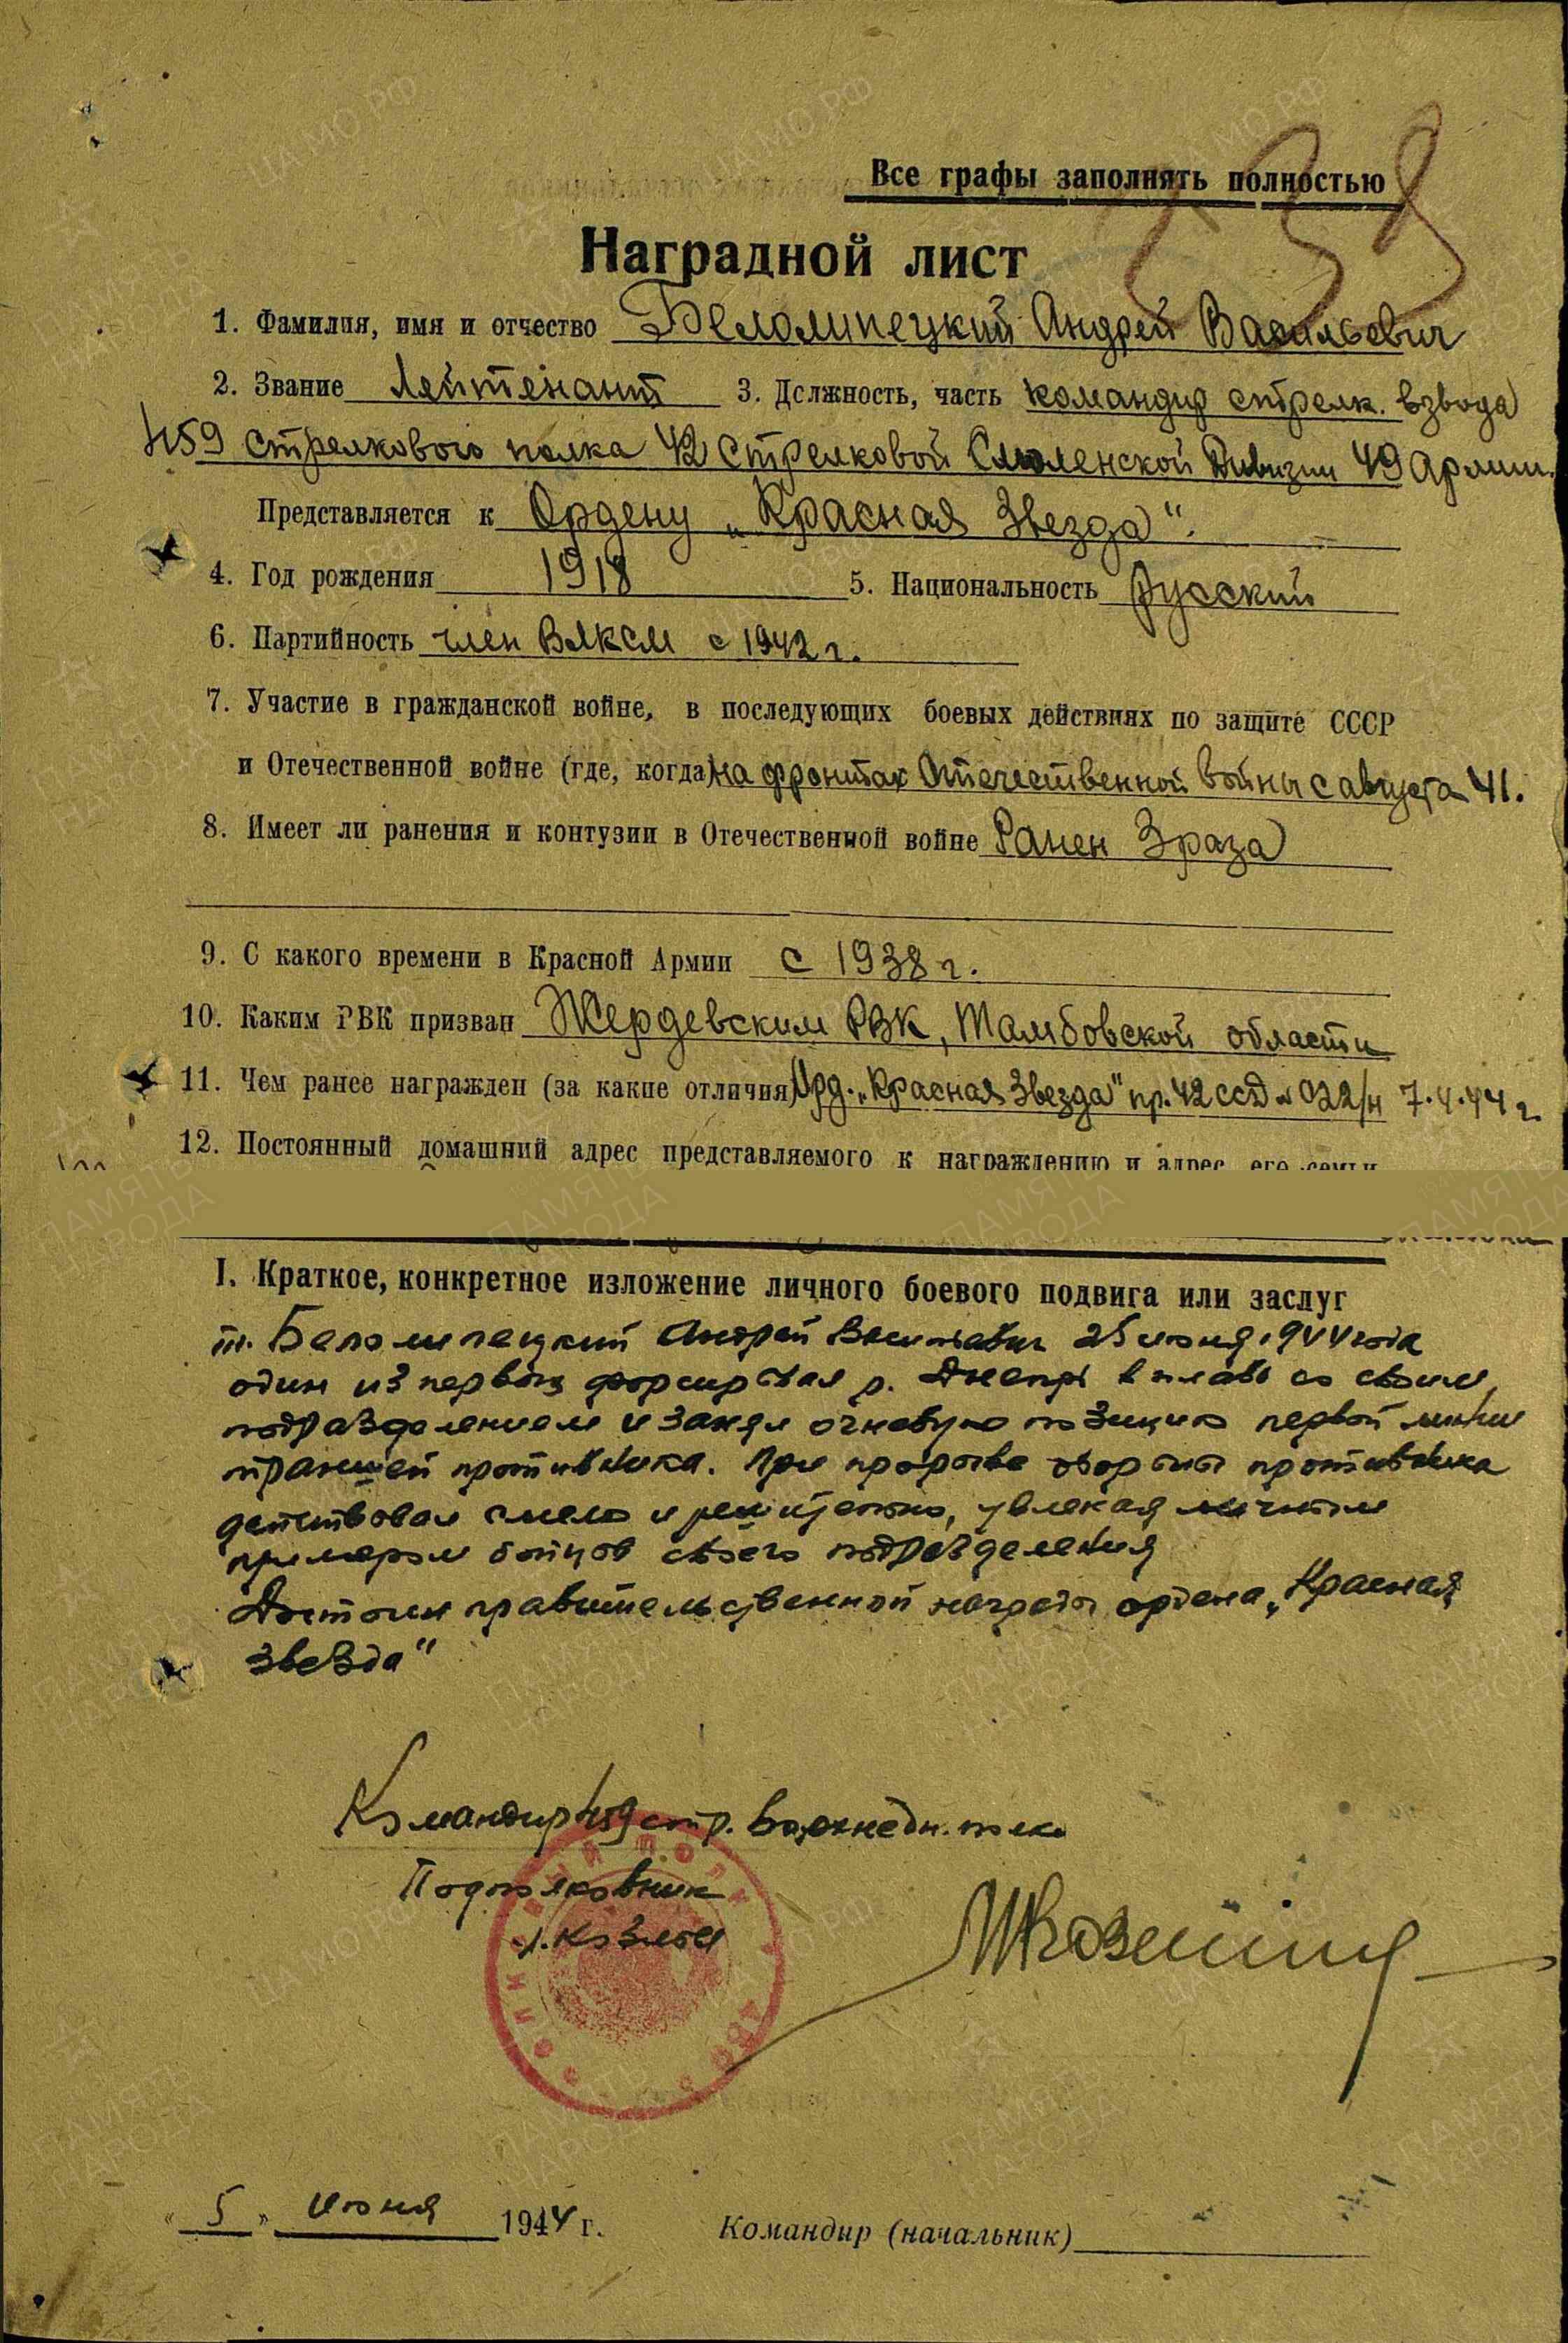 238
Все графы заполнять полностью
Наградной лист
1. Фамилия, имя и отчество Белолипецкий Андрей Васильевич
2. Звание Лейтенант 3. Должность, часть командир стрелк. взвода
459 стрелкового полка 42 Стрелковой Смоленской Дивизии 49 Армии.
Представляется к Ордену „Красная Звезда".
4. Год рождения 1918 5. Национальность русский
6. Партийность член ВЛКСМ с 1942 г.
7. Участие в гражданской войне, в последующих боевых действиях по защите СССР
и Отечественной войне (где, когда) на фронтах Отечественной войны с августа 41.
8. Имеет ли ранения и контузии в Отечественной войне Ранен 3 раза
9. С какого времени в Красной Армии с 1938 г.
10. Каким РВК призван Жердевским РВК, Тамбовской области
11. Чем ранее награжден (за какие отличия) Орд. „Красная Звезда" пр. 42 ссд № 022/н 7.4.44 г.
12. Постоянный домашний адрес представляемого к награждению и адрес его семьи
I. Краткое, конкретное изложение личного боевого подвига или заслуг
т. Белолипецкий Андрей Васильевич 25 июня 1944 года
один из первых форсировал р. Днепр вплавь со своим
подразделением и занял огневую позицию первой линии
траншей противника. При прорыве обороны противника
действовал смело и решительно, увлекая личным
примером бойцов своего подразделения
Достоин правительственной награды ордена „Красная
Звезда"
Командир 459 стр. полка
Подполковник
"5" июня 1944 г. Командир (начальник)
ПАМЯТЬ НАРОДА
ЦАМО.РФ